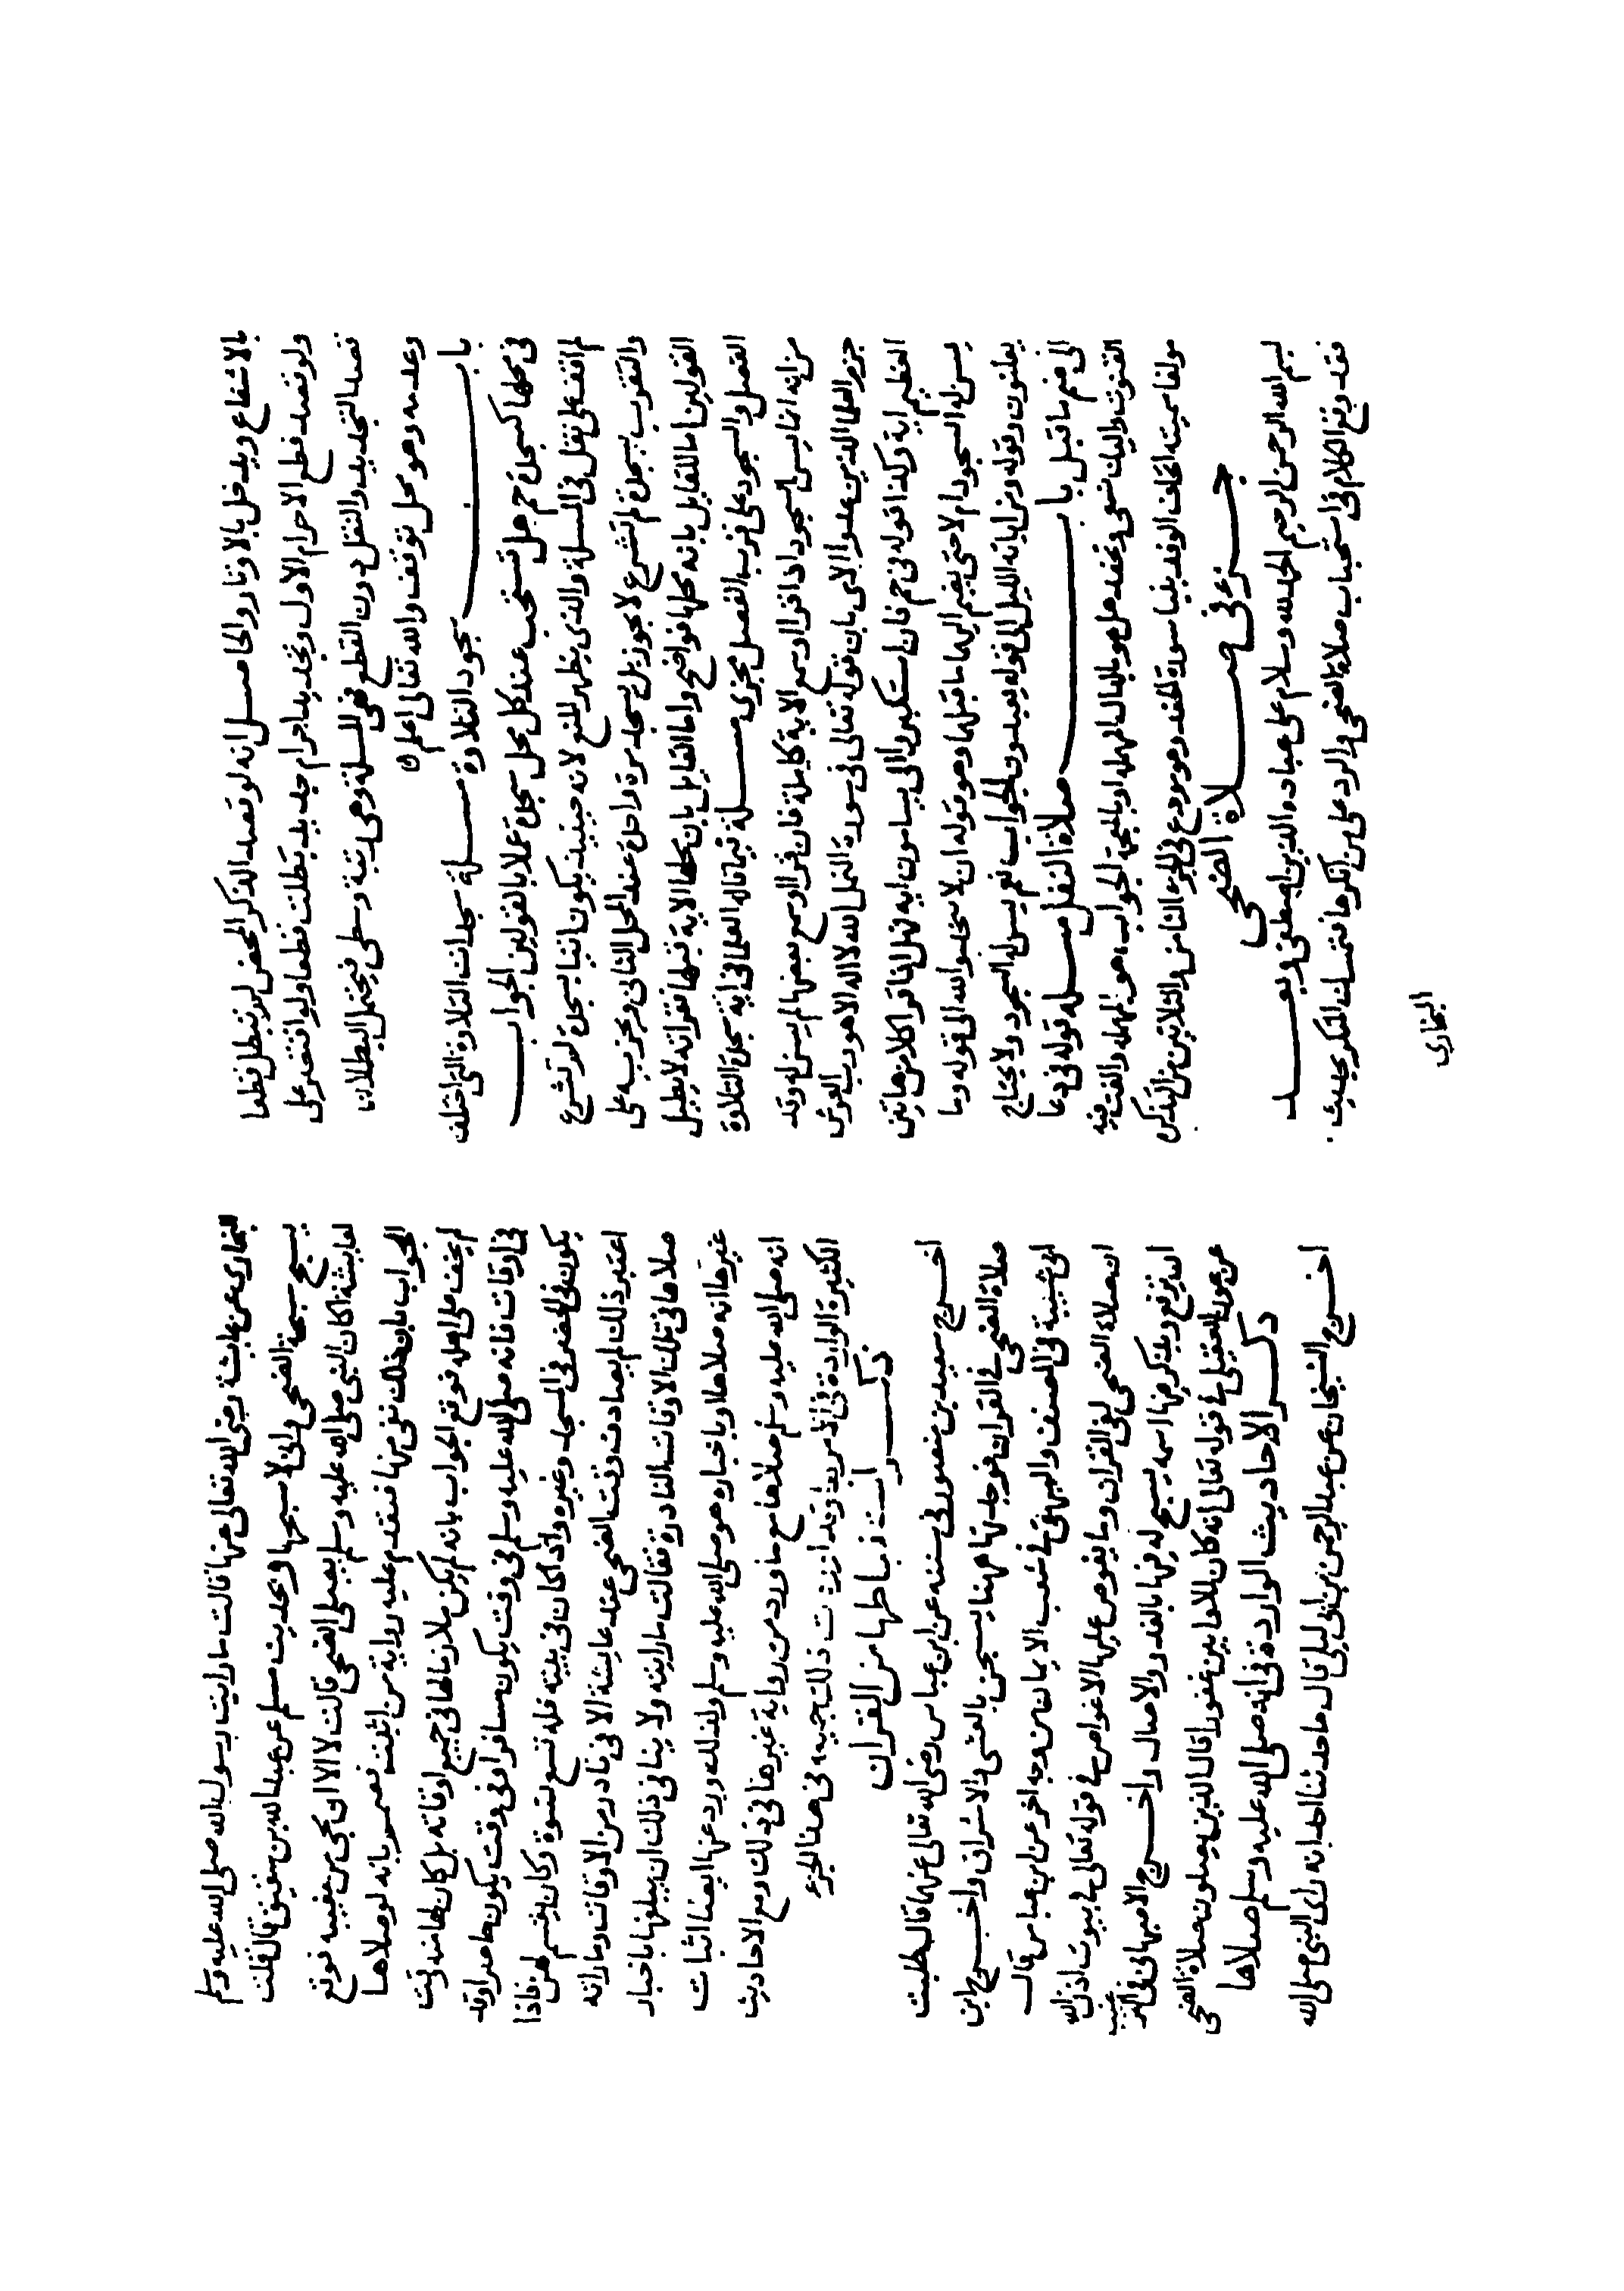 بالاشفاع ويدخل بالاوتار والحاصل انه لو قصد الذكر المحض لم تبطل قطعا
ولو قصد قطع الاحرام الاول وتجديد احرام جديد بطلت قطعا ولو اقتصر على
قصد التجديد والنقل دون القطع فهي المسئلة وهي رتبة وسطى فيحتمل البطلان
وعدمه وهو محل توقف والله تعالى اعلم
باب سجود التلاوة مسئلة سجدات التلاوة التي اختلف
في محلها كسجدة حم هل تستحب عند كل محل سجدة عملا بالقولين الجواب
لم اقف على نقل في المسئلة والذي يظهر المنع لانه حينئذ يكون اتيا بسجدة لم تشرع
والتقرب بسجدة لم تشرع لا يجوز بل يسجد مرة واحدة عند المحل الثاني ويجزيه على
القولين اما القايل بانه محلها فواضح واما القايل بان محلها الاية قبلها فقراته لاية لا يطيل
الفصل والسجود على قرب الفصل مجزي مسئلة فيما قاله العلما في اية سجدة التلاوة
من انه انما يسن السجود اذا قرا او سمع الاية كاملة فان قرا او سمع بعضها لم يسن له وقد
جزم العلما الذين عدوا الآى بان قوله تعالى في سورة النمل الله لا اله الا هو رب العرش
العظيم اية وكذا قوله في حم فان استكبروا الى يسامون اية فهل اذا قرا كلا من هاتين
يسن له السجود ام لا حتى يضم اليهما ما قبلهما وهو قوله ان لا يسجدوا لله الى قوله وما
يعلنون وقوله ومن اياته الليل الى قوله يعبدون الجواب نعم يسن له السجود ولا يحتاج
الى ضم ما قبل باب صلاة النفل مسئلة قوله في دعا
القنوت واليك نسعى ونحفد هل هو بالدال المهملة او بالمعجمة الجواب هو بالمهملة والفت فيه
مولفا سميته اتحاف الوفد بنبا سورة الحفد وهو مودع في الجزء الثامن والثلاثين من التذكرة
جزء في صلاة الضحى
بسم الله الرحمن الرحيم الحمد لله وسلام على عباده الذين اصطفى وبعد
فقد وقع الكلام في استحباب صلاة الضحى والرد على من انكرها فتمسك المنكر بحديث
البخاري
البخاري عن عايشة رضي الله تعالى عنها قالت ما رايت رسول الله صلى الله عليه وسلم
يسبح سبحة الضحى واني لاسبحها وبحديث مسلم عن عبد الله بن شقيق قال قلت
لعايشة اكان النبي صلى الله عليه وسلم يصلي الضحى قالت لا الا ان يجي من مغيبه فوقع
الجواب بان ذلك نفي منها فتقدم عليه رواية من اثبت فصمم بانه لو صلاها
لم يخف على اهله فوقع الجواب بانه لم يكن ملازما لها في جميع اوقاته بل كان لها منه وقت
في اوقات فانه صلى الله عليه وسلم في وقت يكون مسافرا وفي وقت يكون حاضرا وقد
يكون في الحضر في المسجد وغيره واذا كان في بيته فله تسع نسوة وكان يقسم لهن فاذا
اعتبر ذلك لم يصادف وقت الضحى عند عايشة الا في نادر من الاوقات وما راته
صلاها في تلك الاوقات النادرة فقالت ما رايته ولا ينافي ذلك ان يبلغها باخبار
غيرها انه صلاها او باخباره هو صلى الله عليه وسلم ولذلك ورد عنها ايضا اثبات
انه صلى الله عليه وسلم صلاها مع ما ورد من رواية غيرها في ذلك ومع الاحاديث
الكثيرة الواردة في الامر بها وقد افردت ذلك جميعه في هذا الجزء
ذكر استنباطها من القران
اخرج سعيد بن منصور في سننه عن ابن عباس رضي الله تعالى عنهما قال طلبت
صلاة الضحى في القران فوجدتها ههنا يسبحن بالعشي والاشراق واخرج ابن
ابي شيبة في المصنف والبيهقي في شعب الايمان من وجه اخر عن ابن عباس قال
ان صلاة الضحى لفي القران وما يغوص عليها الا غواص في قوله تعالى في بيوت اذن الله
ان ترفع ويذكر فيها اسمه يسبح له فيها بالغدو والاصال واخرج الاصبهاني في الترغيب
عن عون العقيلي في قوله تعالى انه كان للاوابين غفورا قال الذين يصلون صلاة الضحى
ذكر الاحاديث الواردة في انه صلى الله عليه وسلم صلاها
اخرج الشيخان عن عبد الرحمن بن ابي ليلى قال ما حدثنا احد انه راى النبي صلى الله